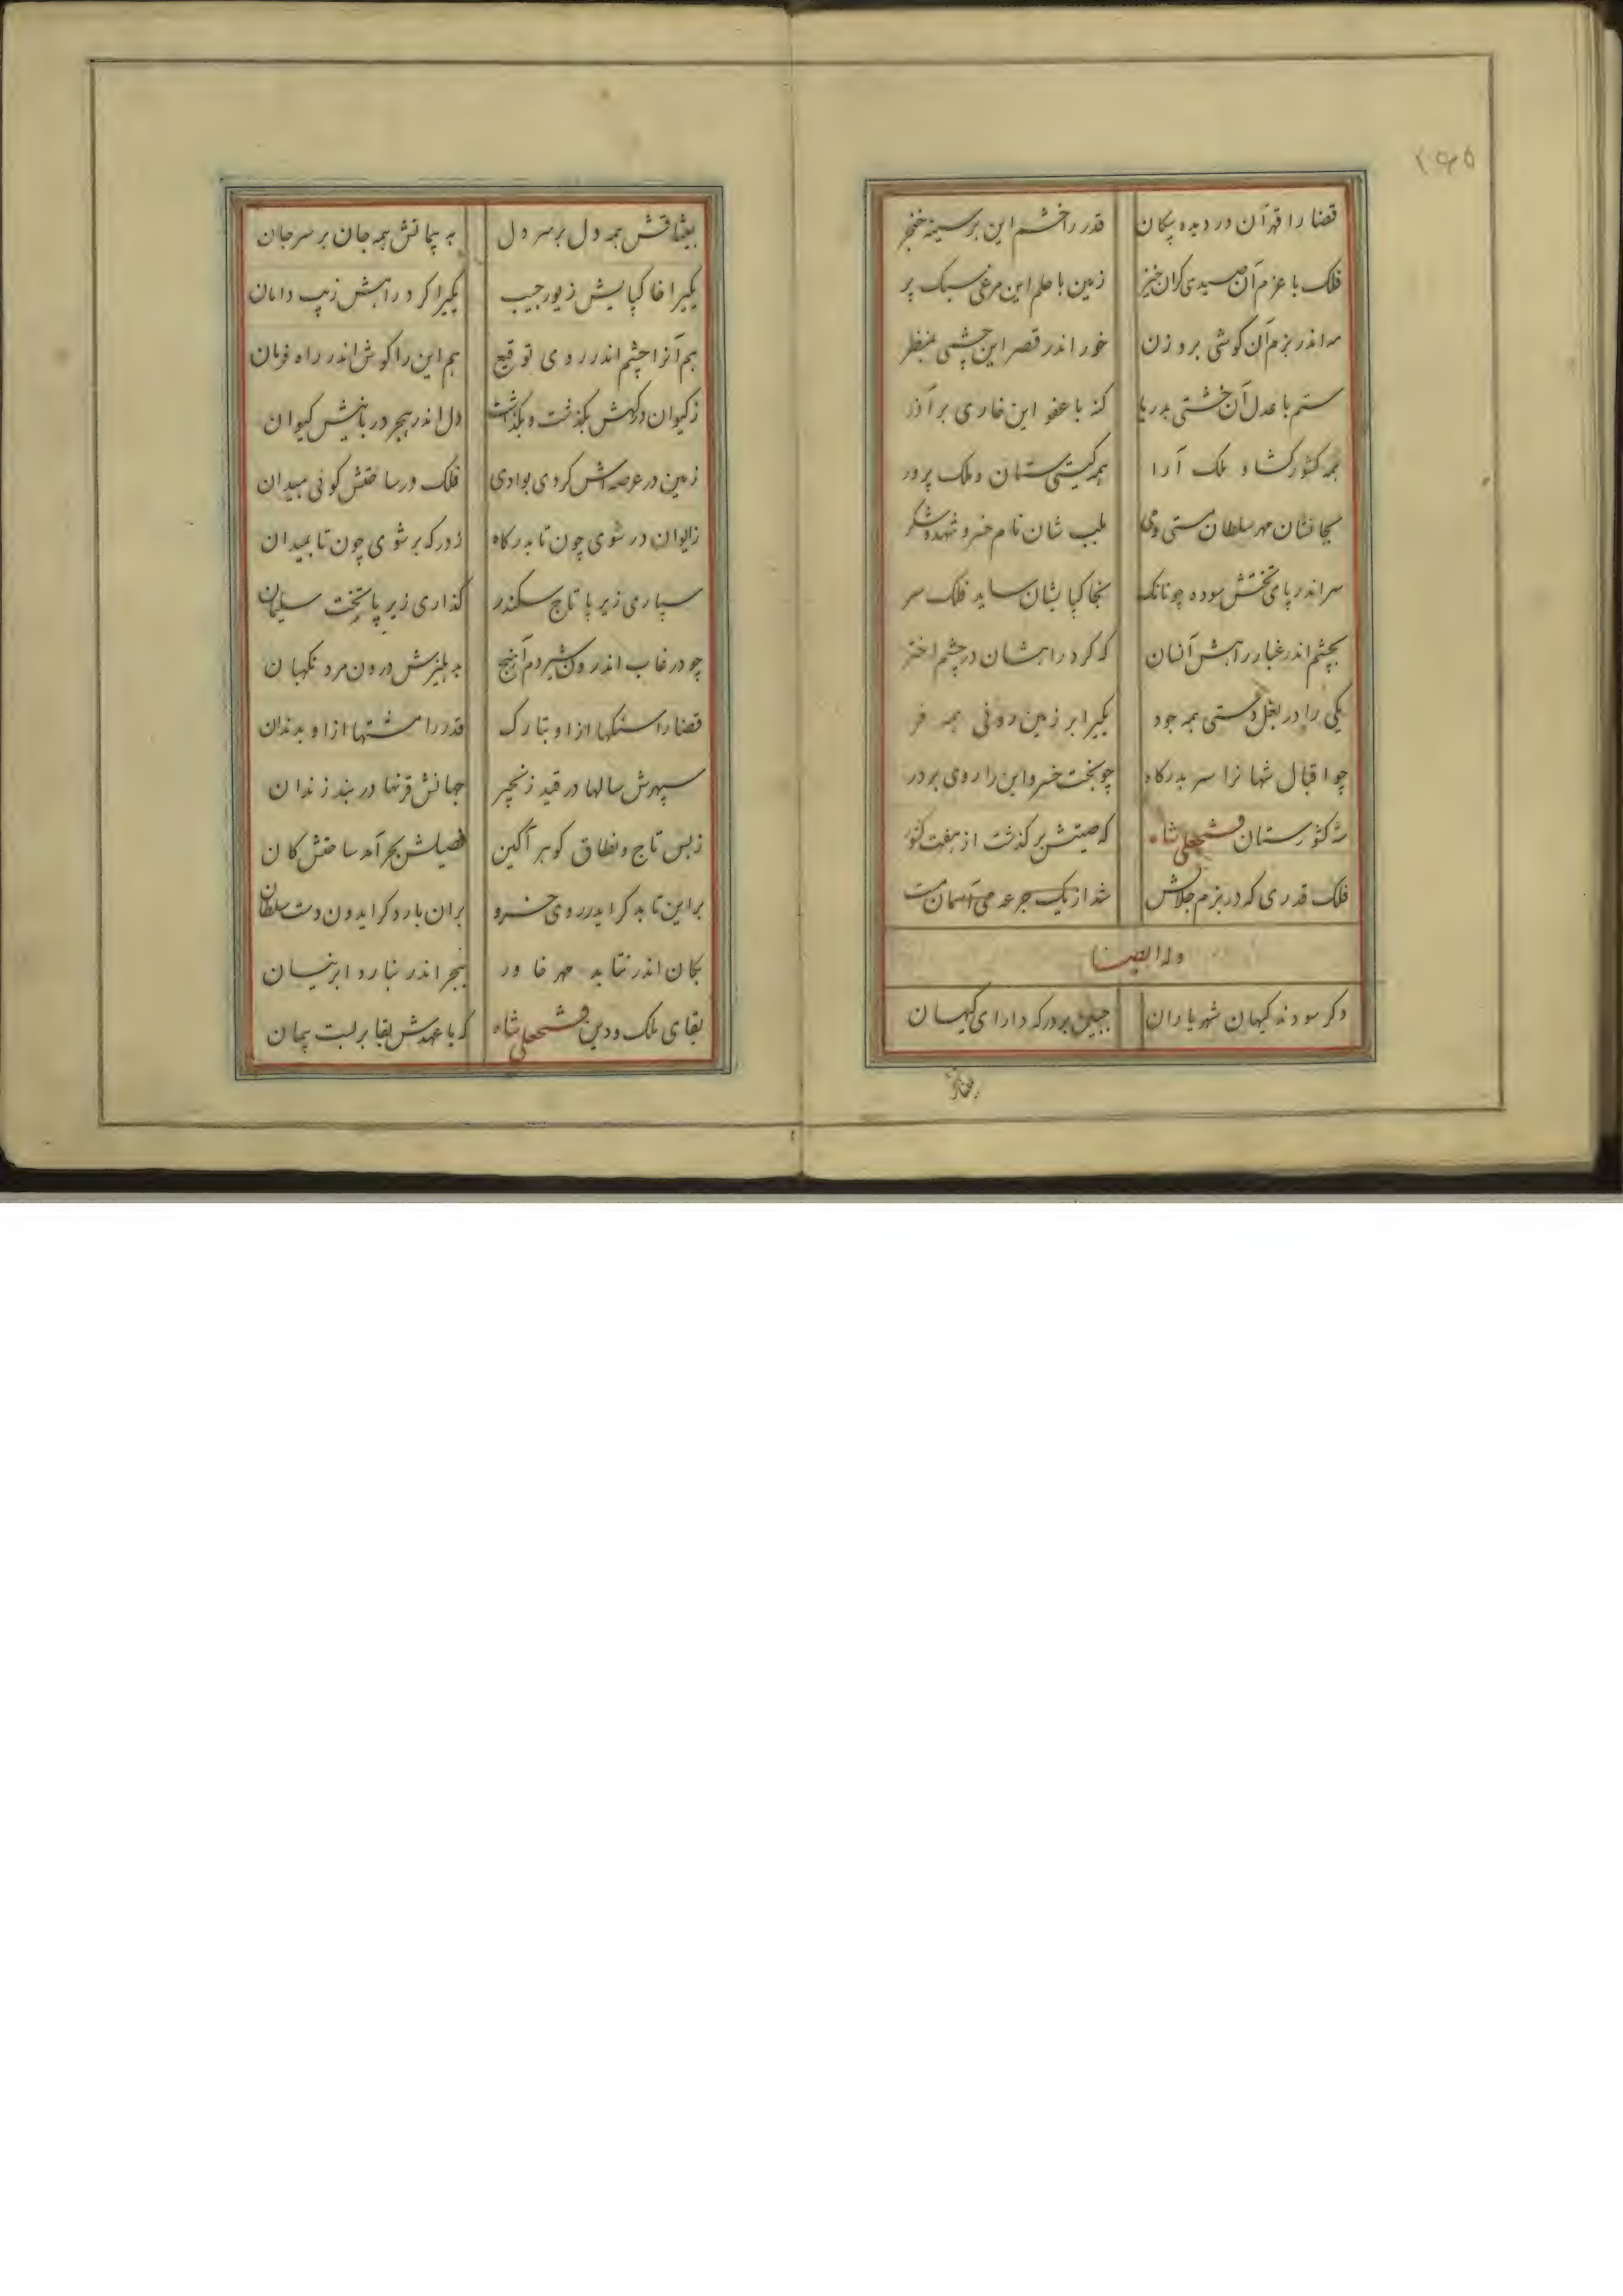 ۲۶۵
قضا را قهر آن در دیده پیکان قدر را خشم این بر سینه خنجر
فلک با عزم آن صیدی کران خیز زمین با حلم این مرغی سبک پر
مه اندر بزم آن کوشی بروزن خور اندر قصر این چشمی بمنظر
ستم با عدل آن خشتی بدریا کنه با عفو این خاری بر آذر
همه کشور کشا و ملک آرا همه کیتی ستان و ملک پرور
بجانشان مهر سلطان مستی و می بلب شان نام خسرو شهد و شکر
سر اندر پای تختش سوده چونانک بخاک پایشان ساید فلک سر
بچشم اندر غبار راهش آنسان که کرد راهشان در چشم اختر
یکی را در بغل دستی همه جود یکی را بر زمین روئی همه فر
چو اقبال شهانرا سر بدرکاه چو بخت خسرو این را روی بر در
شه کشورستان فتحعلی شاه که صیتش بر کذشت از هفت کشور
فلک قدری که در بزم جلالش شد از یک جرعه می آسمان مست
وله ایضا
دکر سودند کیهان شهریاران جبین بر درکه دارای کیهان
بعشاقش همه دل بر سر دل به پیمانش همه جان بر سر جان
یکیرا خاک پایش زیور جیب یکیرا کرد راهش زیب دامان
هم آنرا چشم اندر روی توقیع هم این را کوش اندر راه فرمان
ز کیوان درکهش بکذشت و بکذاشت دل اندر هجر دربانیش کیوان
زمین در عرصه اش کردی بوادی فلک در ساحتش کوئی بمیدان
ز ایوان در شوی چون تا بدرکاه ز درکه بر شوی چون تا بمیدان
سپاری زیر پا تاج سکندر کذاری زیر پا تخت سلیمان
چو در غاب اندرون شیر دم آهنج به دهلیزش درون مرد نکهبان
قضا را سنکها از او بتارک قدر را مشتها از او بدندان
سپهرش سالها در قید زنجیر جهانش قرنها در بند زندان
ز بس تاج و نطاق کوهر آکین فصیلش بحر آمد ساحتش کان
بر این تابد کر ایدر روی خسرو بران بارد کر ایدون دست سلطان
بکان اندر نتابد مهر خاور ببحر اندر نبارد ابر نیسان
بقای ملک و دین فتحعلی شاه که با عهدش بقا بر بست پیمان